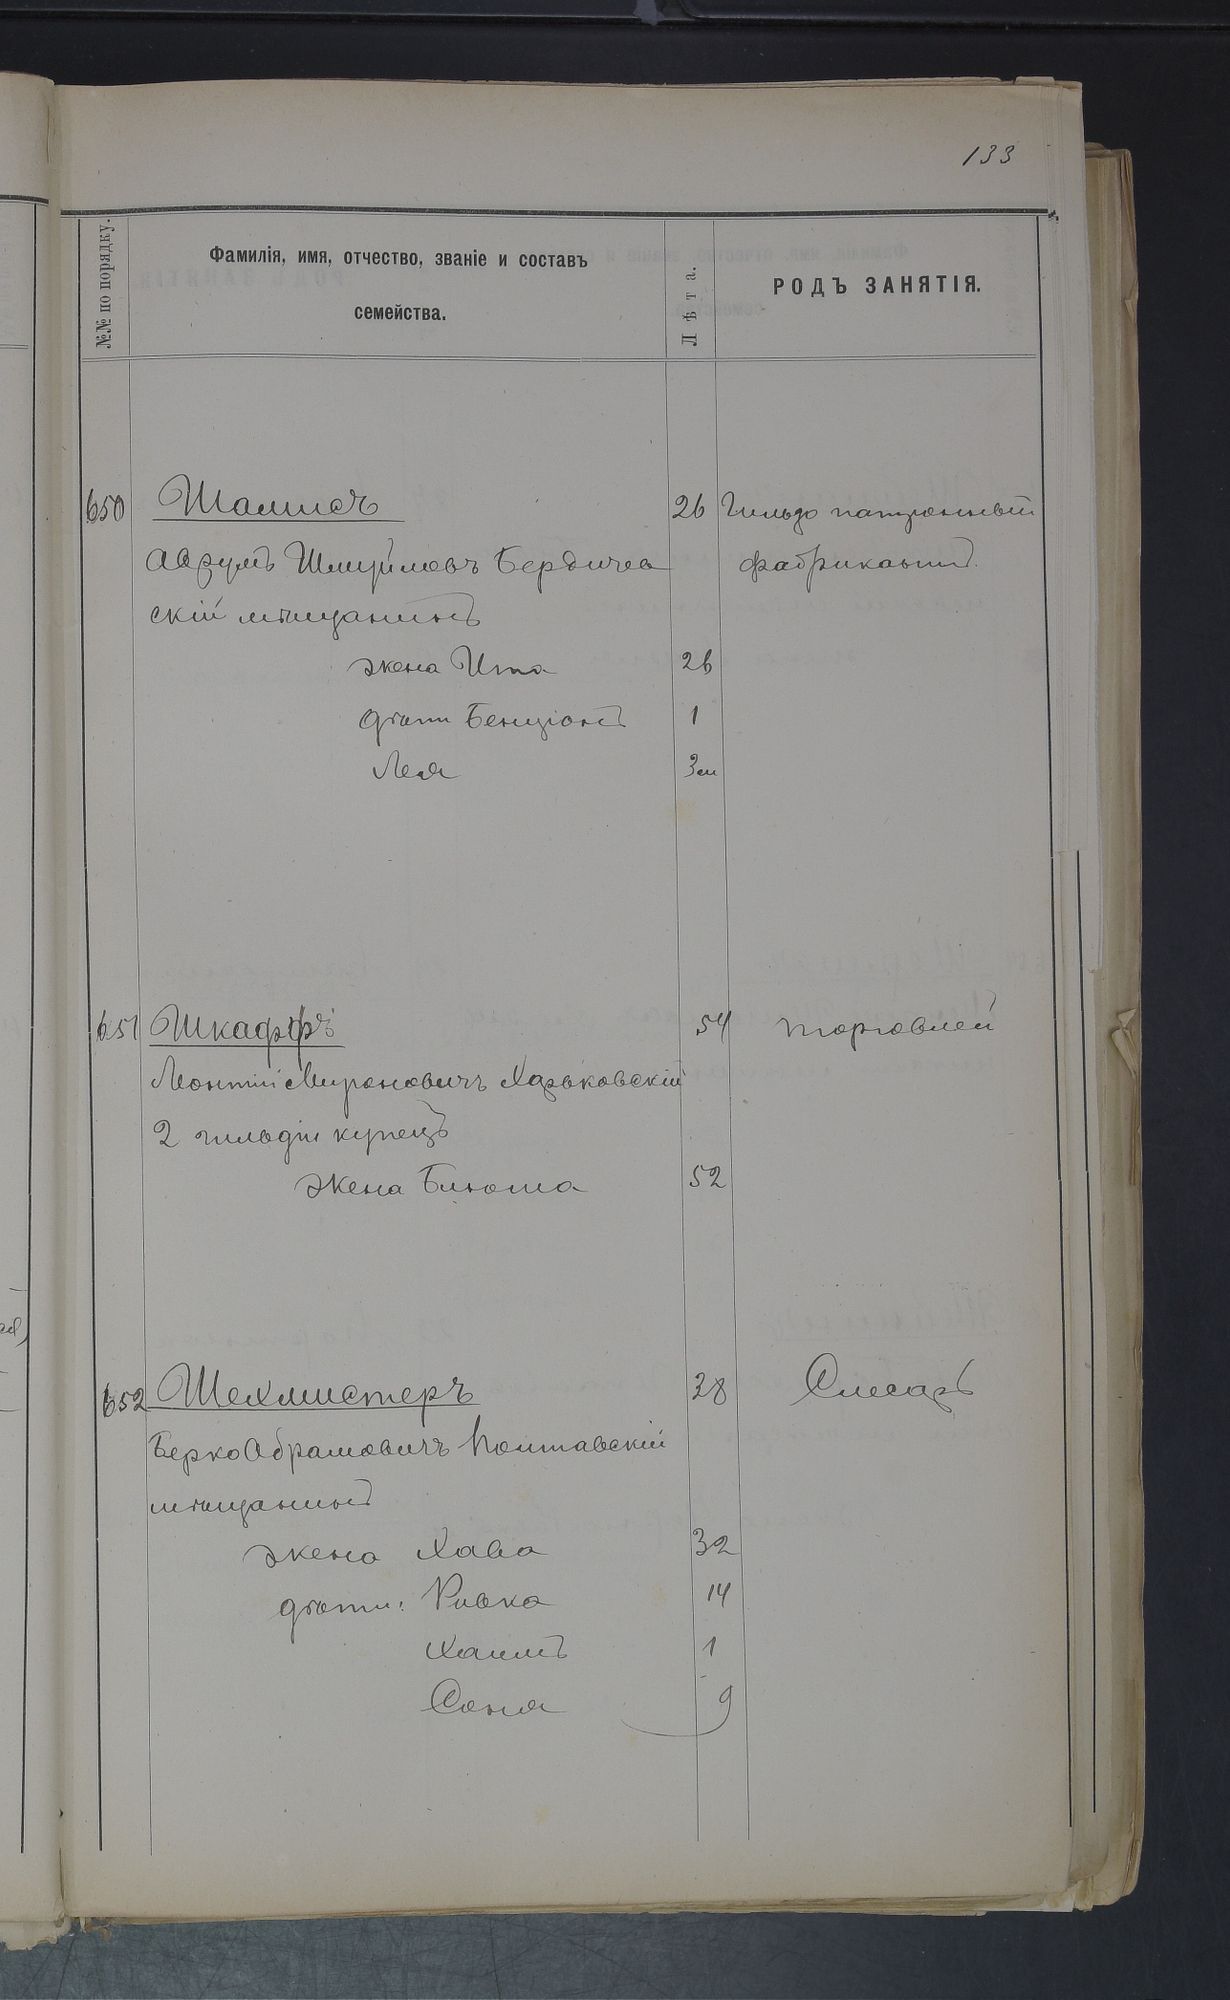 133
№№ по порядку.
Фамилія, имя, отчество, званіе и составъ
семейства.
Лѣта.
РОДЪ ЗАНЯТІЯ.
650 Шамисъ 26 Гильзо патронный
Аврумъ Шмуйловъ Бердичев фабрикантъ.
скій мѣщанинъ
жена Ита 26
дѣти Бенціонъ 1
Лея 3 м
651 Шкаффъ 54 торговлей
Леонтій Мироновичъ Харьковскій
2 гильдіи купецъ
жена Блюма 52
652 Шехмистеръ 38 Слесарь
Берко Абрамовичъ Полтавскій
мѣщанинъ
жена Хава 32
дѣти: Ривка 14
Хаимъ 1
Соня 9